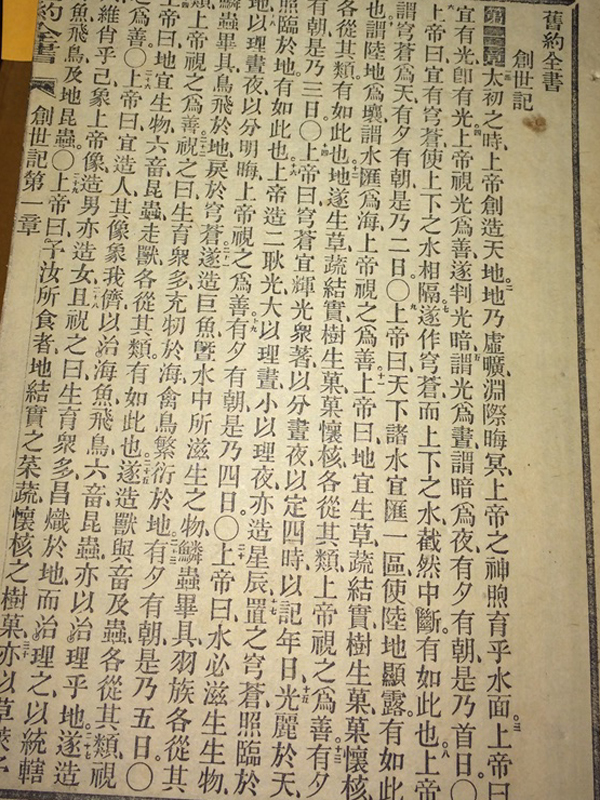 舊約全書
創世記
太初之時、上帝創造天地、地乃虛曠、淵際晦冥、上帝之神煦育乎水面、上帝曰
宜有光、卽有光、上帝視光爲善、遂判光暗、謂光爲晝、謂暗爲夜、有夕有朝、是乃首日、〇
上帝曰、宜有穹蒼、使上下之水相隔、遂作穹蒼、而上下之水、截然中斷、有如此也、上帝
謂穹蒼爲天、有夕有朝、是乃二日、〇上帝曰、天下諸水宜匯一區、使陸地顯露、有如此
也、謂陸地爲壤、謂水匯爲海、上帝視之爲善、上帝曰、地宜生草蔬結實、樹生菓、菓懷核、
各從其類、有如此也、地遂生草蔬結實、樹生菓、菓懷核、各從其類、上帝視之爲善、有夕
有朝、是乃三日、〇上帝曰、穹蒼宜輝光衆著、以分晝夜、以定四時、以記年日、光麗於天、
照臨於地、有如此也、上帝造二耿光、大以理晝、小以理夜、亦造星辰、置之穹蒼、照臨於
地、以理晝夜、以分明晦、上帝視之爲善、有夕有朝、是乃四日、〇上帝曰、水必滋生生物、
鱗蟲畢具、鳥飛於地、戾於穹蒼、遂造巨魚、曁水中所滋生之物、鱗蟲畢具、羽族各從其
類、上帝視之爲善、祝之曰、生育衆多、充牣於海、禽鳥繁衍於地、有夕有朝、是乃五日、〇
上帝曰、地宜生物、六畜昆蟲走獸、各從其類、有如此也、遂造獸與畜及蟲、各從其類、視
之爲善、〇上帝曰、宜造人、其像象我儕、以治海魚飛鳥六畜昆蟲、亦以治理乎地、遂造
維肖乎己、象上帝像、造男亦造女、且祝之曰、生育衆多、昌熾於地、而治理之、以統轄
魚飛鳥、及地昆蟲、〇上帝曰、予汝所食者、地結實之菜蔬、懷核之樹菓、亦以草萊
約全書 創世記第一章